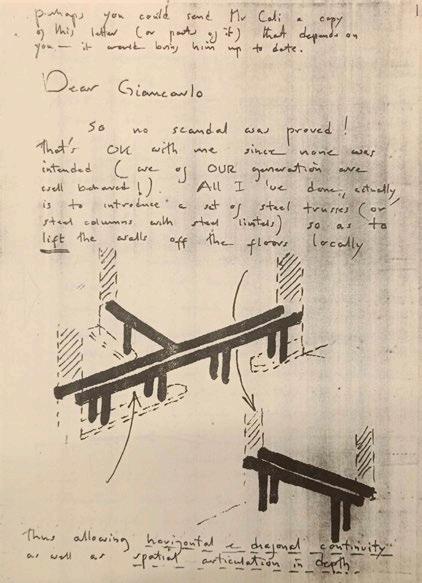 perhaps you could send Mr Cali a copy
of this letter (or parts of it) that depends on
you — it would bring him up to date.
Dear Giancarlo
So no scandal was proved!
That's OK with me since none was
intended (we of OUR generation are
well behaved!). All I've done, actually,
is to introduce a set of steel trusses (or
steel columns with steel lintels) so as to
lift the walls off the floors locally
Thus allowing horizontal e diagonal continuity
as well as spatial articulation in depth.